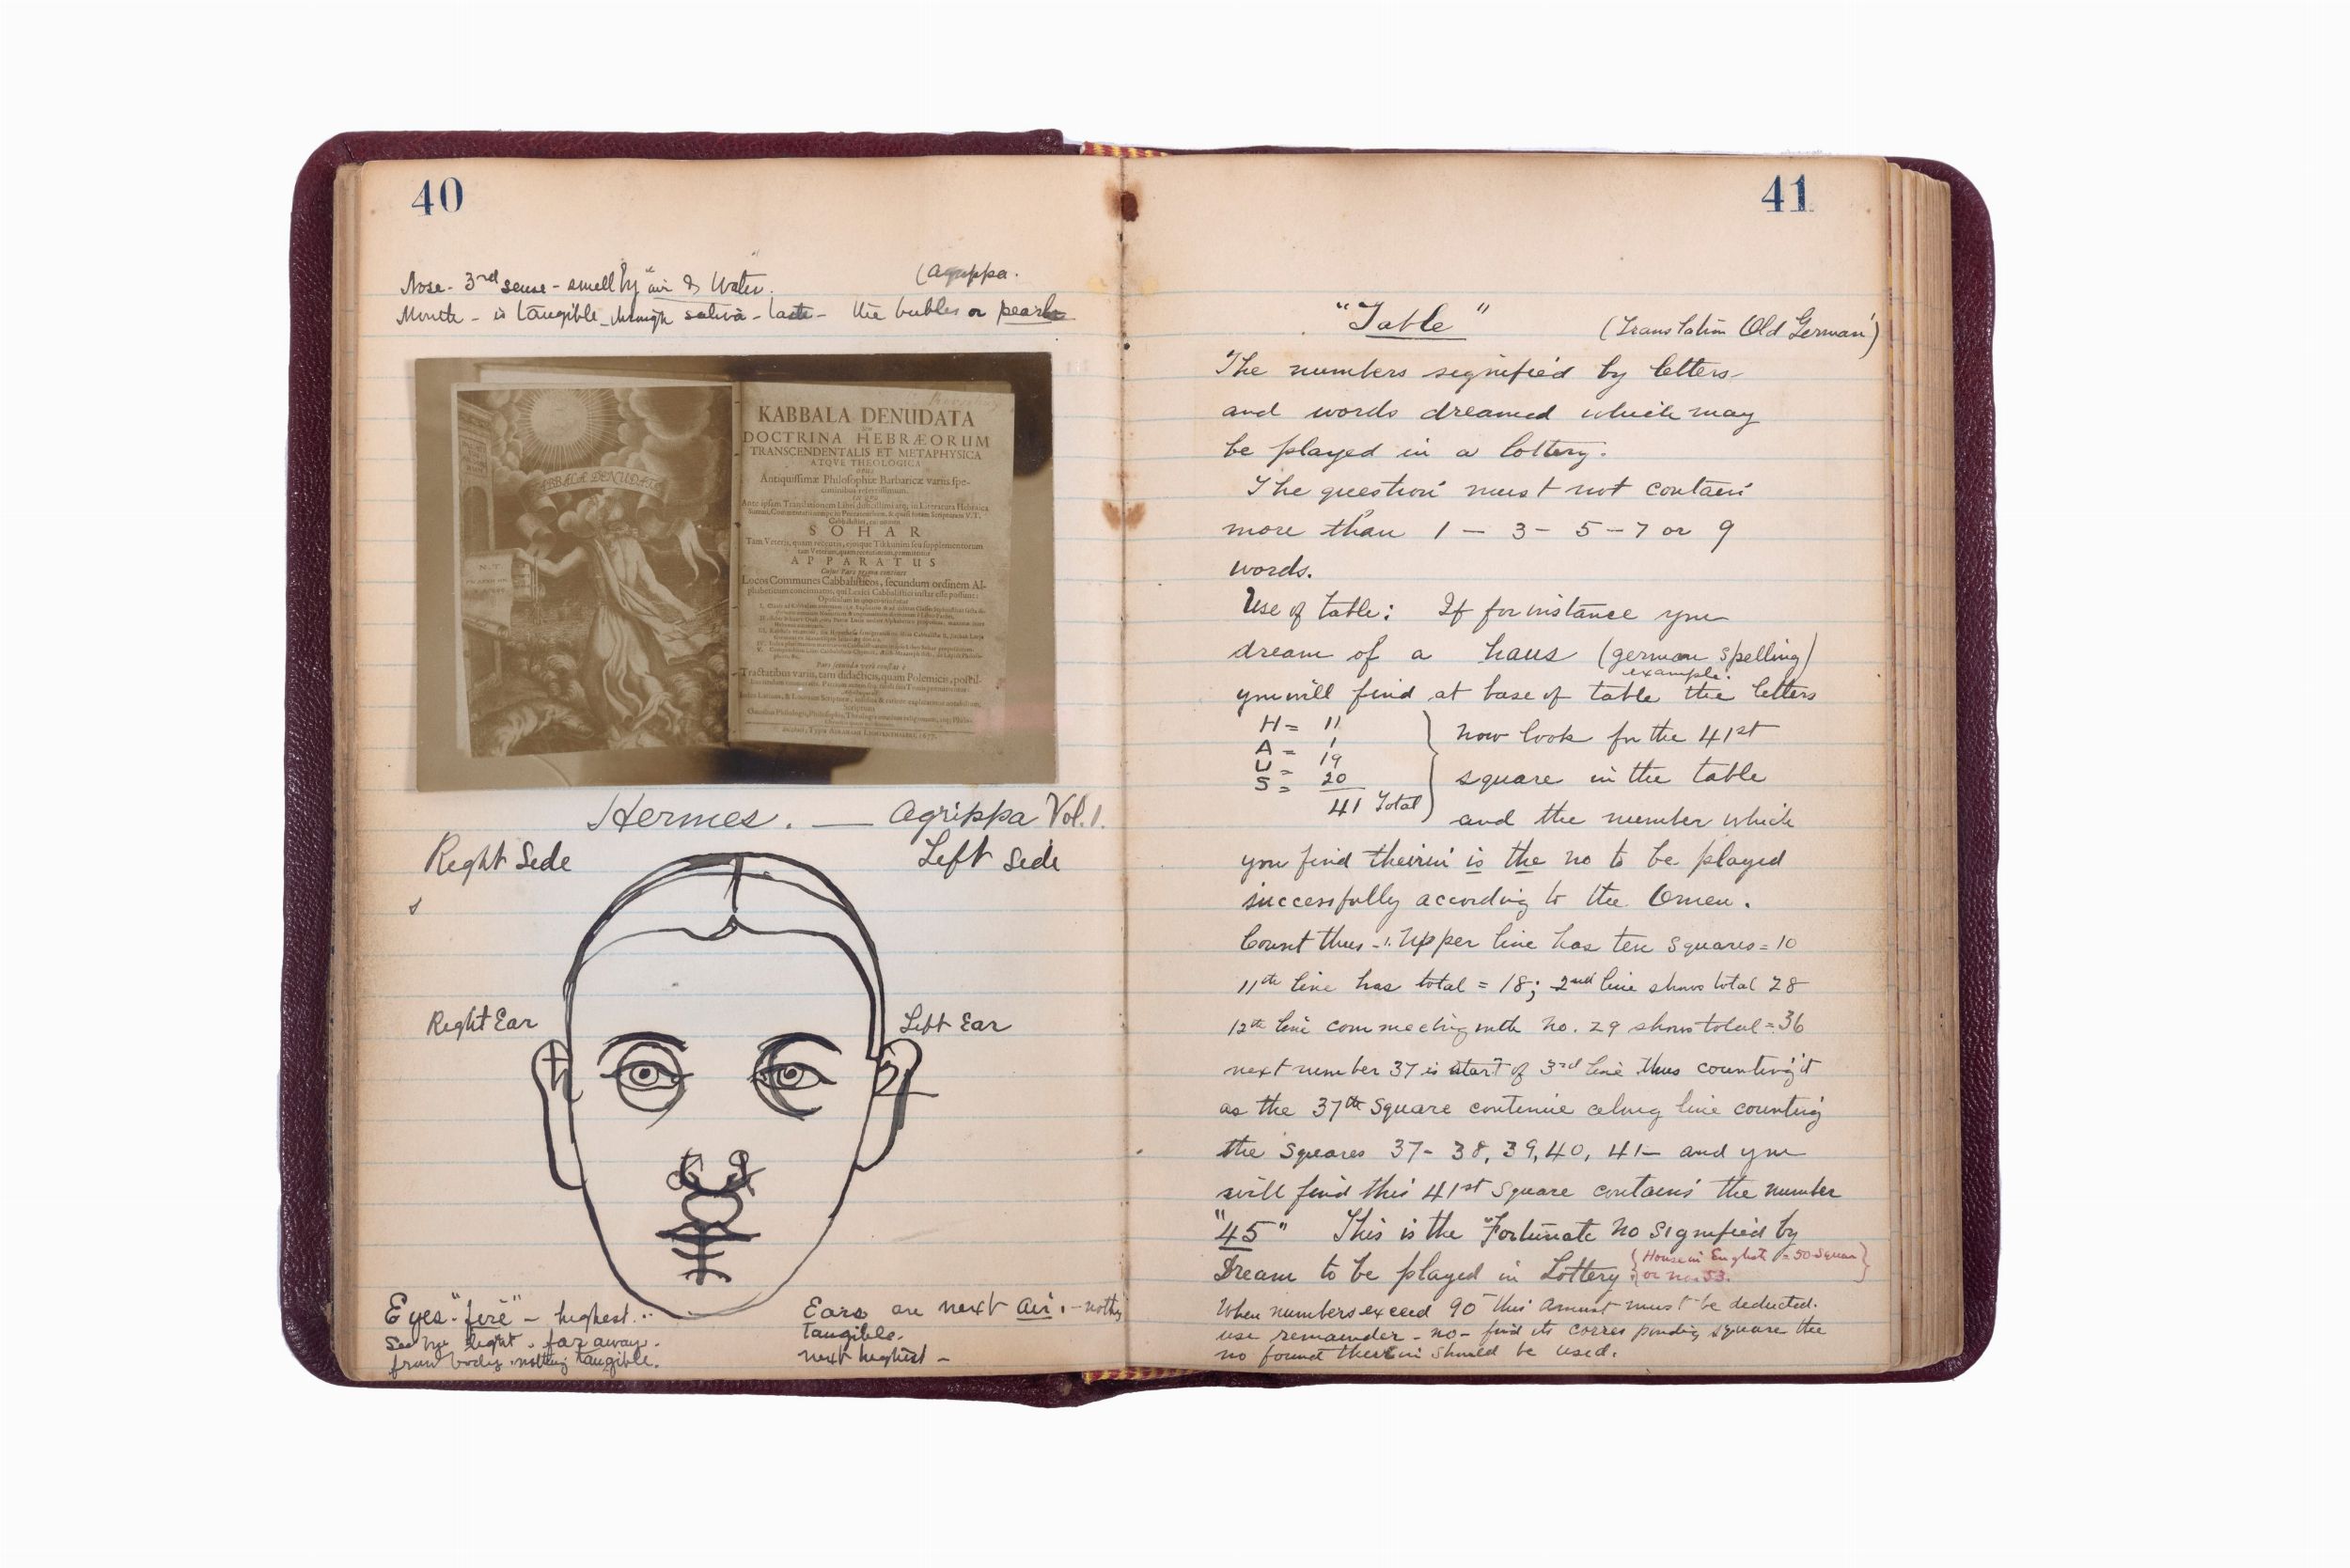 40
(Agrippa.
Nose - 3rd sense - smell by "air & Water."
Mouth - is tangible - through saliva - taste - the bubbles or pearls
KABBALA DENUDATA
SEU
DOCTRINA HEBRÆORUM
TRANSCENDENTALIS ET METAPHYSICA
ATQVE THEOLOGICA
OPUS
Antiquissimæ Philosophiæ Barbaricæ variis spe-
ciminibus refertissimum.
IN QVO
SOHAR
Tam Veteris, quam recentis, ejusque Tikkunim seu supplementorum
APPARATUS
Cujus Pars prima continet
Locos Communes Cabbalisticos, secundum ordinem Al-
phabeticum concinnatos, qui Lexici Cabbalistici instar esse possunt:
Pars secunda verò constat è
Tractatibus variis, tam didacticis, quam Polemicis, post il-
KABBALA DENUDATA
N.T.
Hermes. — Agrippa Vol. 1.
Right Side
Left Side
s
Right Ear
Left Ear
Eyes - "fire" - highest..
See by light . far away.
from body . nothing tangible.
Ears are next air. - nothing
tangible.
next highest -
41
"Table"
(Translation Old German)
The numbers signified by letters -
and words dreamed which may
be played in a lottery.
The question must not contain
more than 1 — 3 — 5 — 7 or 9
words.
Use of table: If for instance you
dream of a haus (german spelling)
example.
you will find at base of table the letters
H = 11
A = 1
U = 19
S = 20
41 Total
now look for the 41st
square in the table
and the number which
you find therein is the no to be played
successfully according to the Omen.
Count thus -1. Upper line has ten squares = 10
11th line has total = 18; 2nd line shows total 28
12th line commecting with no. 29 shows total = 36
next number 37 is start of 3rd line thus counting it
as the 37th square continue along line counting
the squares 37- 38, 39, 40, 41— and you
will find this 41st square contains the number
"45" This is the "Fortunate no signified by
Dream to be played in Lottery.
{House in English = 50 Square}
{or no. 53.
When numbers exceed 90 this amount must be deducted.
use remainder - no - find its corresponding square the
no found therein should be used.